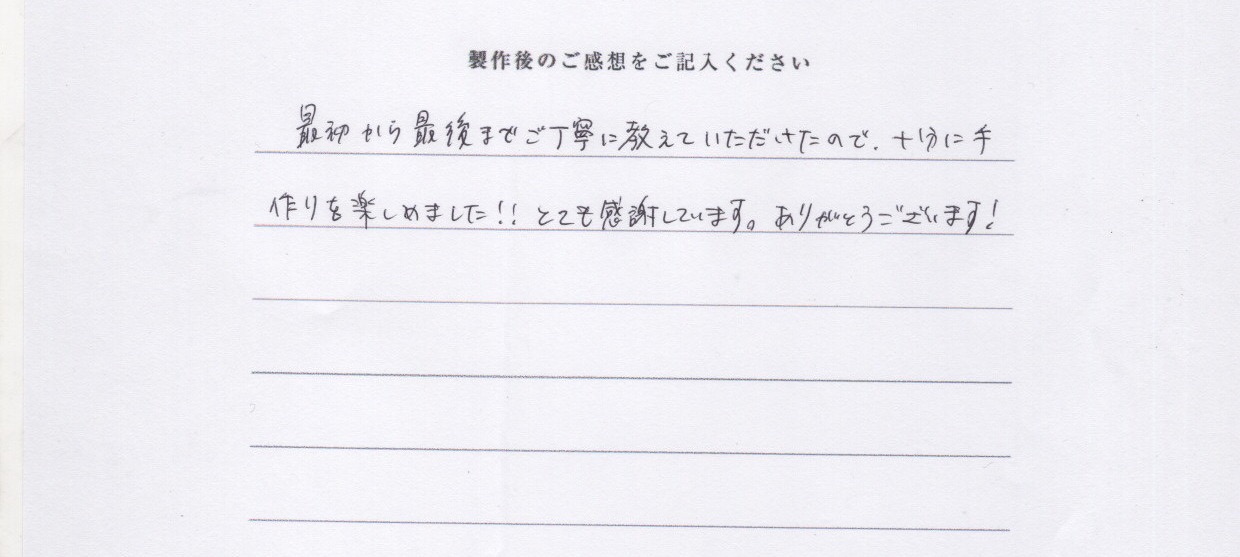 製作後のご感想をご記入ください
最初から最後までご丁寧に教えていただけたので、十分に手
作りを楽しめました!! とても感謝しています。ありがとうございます!